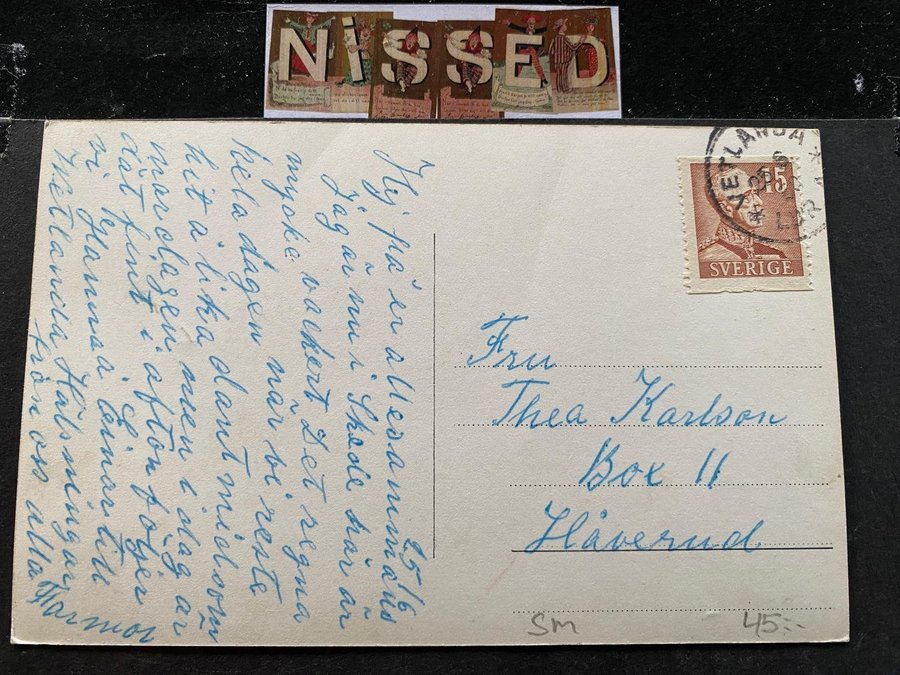 NiSSED
25/6
Hej på er allesammans
Jag är nu i Skede här är
mycke vackert Det regna
hela dagen när vi reste
hit å lika dant midsom
mardagen men i dag är
dät fint i afton följer
vi Hanna å Einar till
Vetlanda Hälsningar
från oss alla Mormor
VETLANDA
25 6
LBR
15
SVERIGE
Fru
Thea Karlson
Box 11
Håverud
SM 45:-